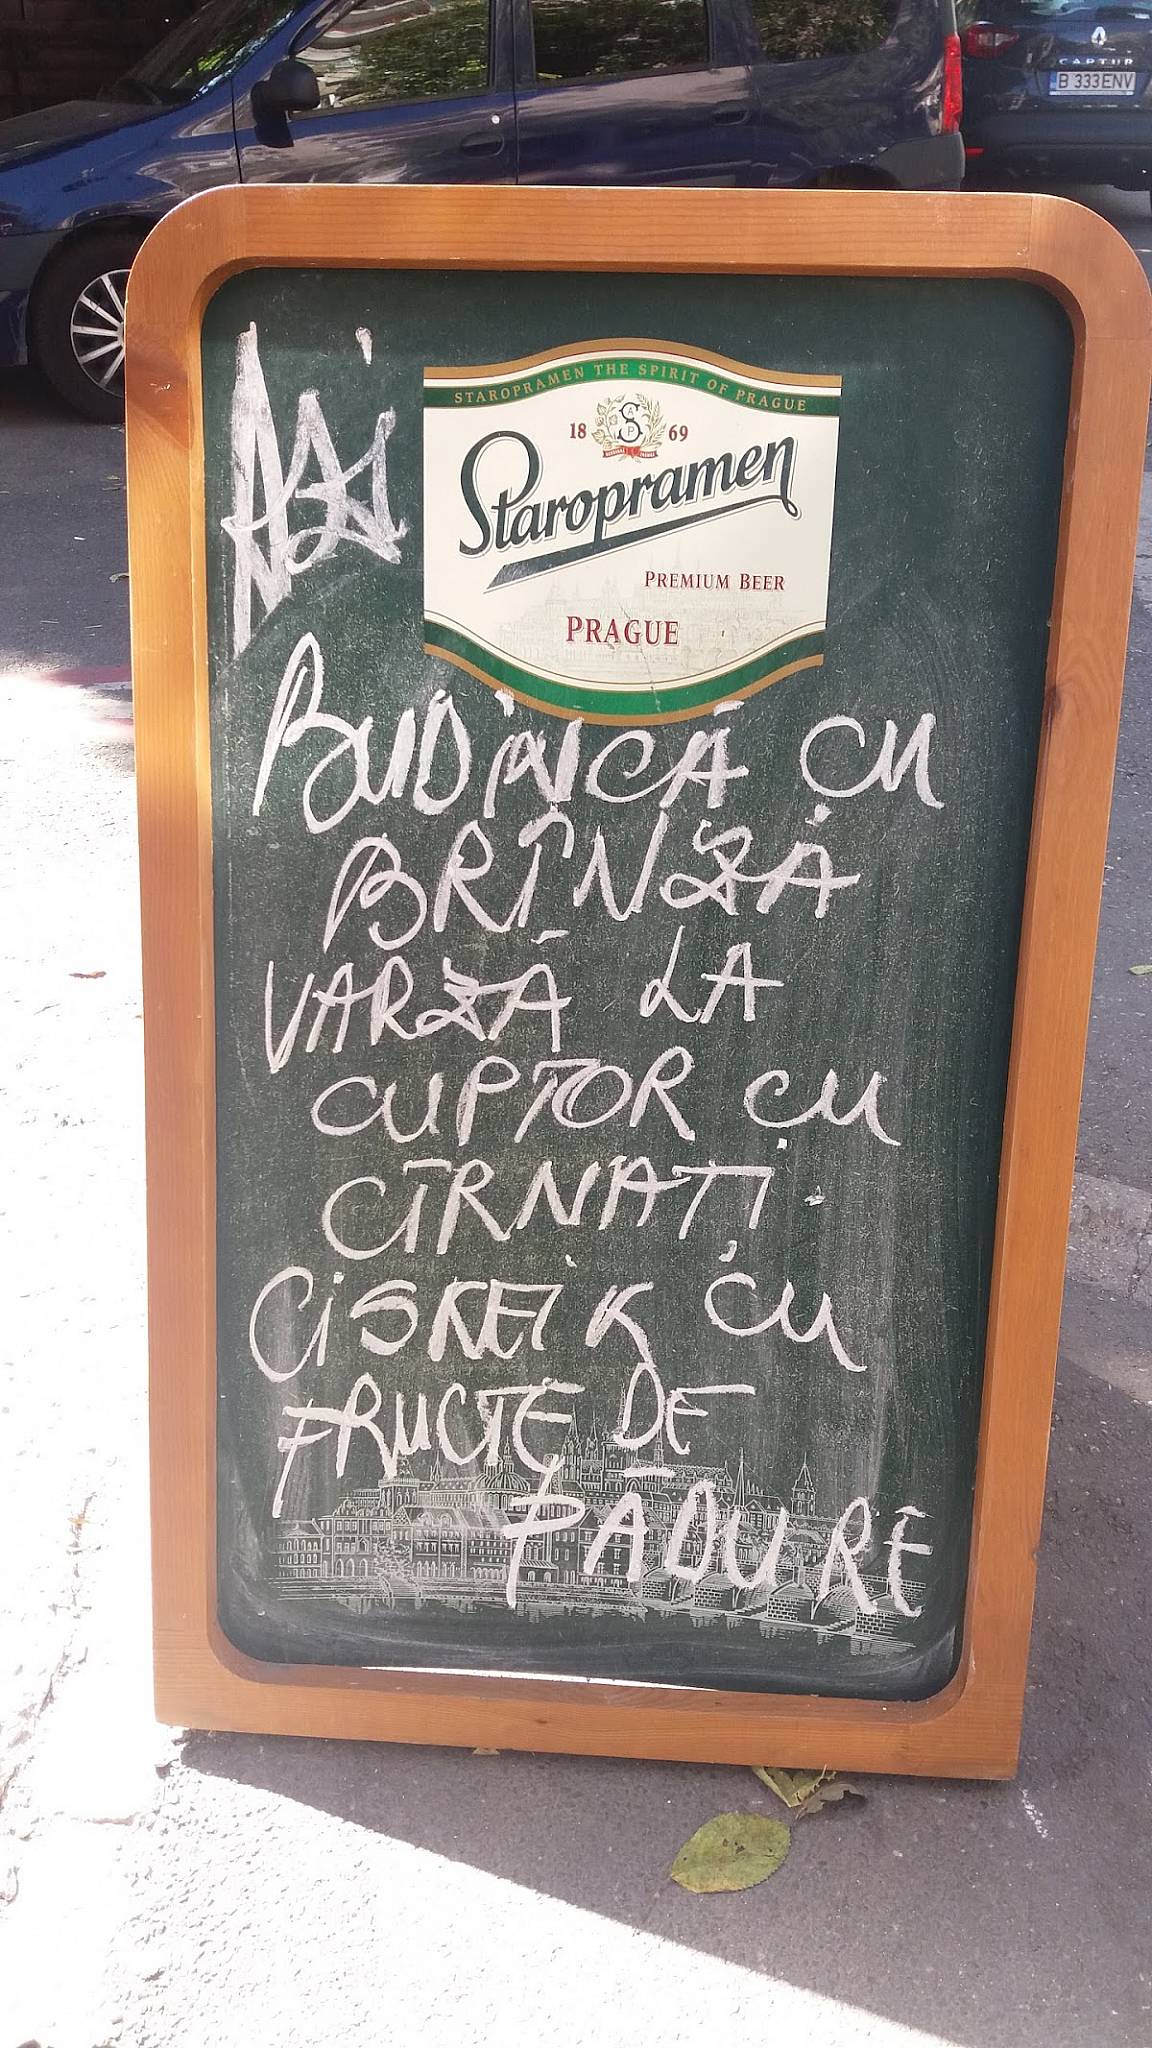 CAPTUR
B 333ENV
Azi
STAROPRAMEN THE SPIRIT OF PRAGUE
18 69
Staropramen
PREMIUM BEER
PRAGUE
BUDÎNCĂ CU
BRÎNZĂ
VARZĂ LA
CUPTOR CU
CÎRNAȚI
CISKEIK CU
FRUCTE DE
PĂDURE